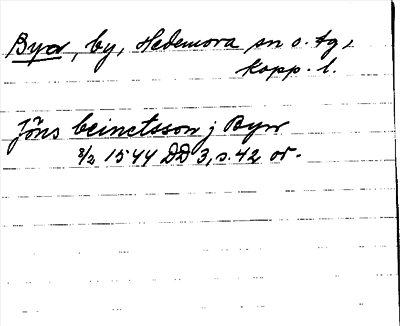 Byn, by, Hedemora sn o. tg,
Kopp. l.
Jöns beinetsson j Byn
8/2 1544 DD 3, s. 42 or.